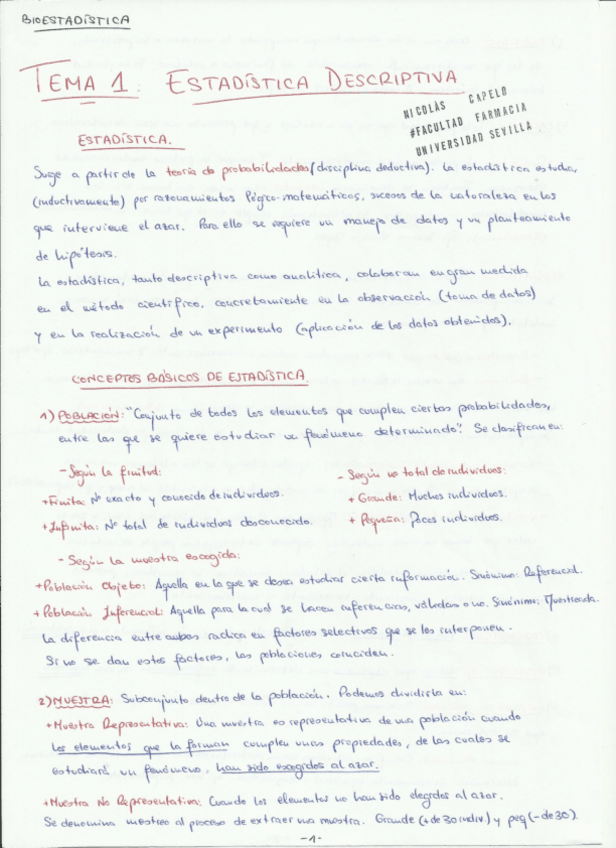 BIOESTADÍSTICA
TEMA 1: ESTADÍSTICA DESCRIPTIVA
NICOLÁS CAPELO
#FACULTAD FARMACIA
UNIVERSIDAD SEVILLA
ESTADÍSTICA.
Surge a partir de la teoría de probabilidades (disciplina deductiva). La estadística estudia,
(inductivamente) por razonamientos lógico-matemáticos, sucesos de la naturaleza en los
que interviene el azar. Para ello se requiere un manejo de datos y un planteamiento
de hipótesis.
La estadística, tanto descriptiva como analítica, colaboran en gran medida
en el método científico, concretamente en la observación (toma de datos)
y en la realización de un experimento (aplicación de los datos obtenidos).
CONCEPTOS BÁSICOS DE ESTADÍSTICA.
1) POBLACIÓN: "Conjunto de todos los elementos que cumplen ciertas probabilidades,
entre las que se quiere estudiar un fenómeno determinado". Se clasifican en:
- Según la finitud:
- Según nº total de individuos:
+ Finita: Nº exacto y conocido de individuos.
+ Grande: Muchos individuos.
+ Infinita: Nº total de individuos desconocido.
+ Pequeña: Pocos individuos.
- Según la muestra escogida:
+ Población Objeto: Aquella en la que se desea estudiar cierta información. Sinónimo: Referencial.
+ Población Inferencial: Aquella para la cual se hacen inferencias, válidas o no. Sinónimo: Muestreada.
La diferencia entre ambas radica en factores selectivos que se les interponen.
Si no se dan estos factores, las poblaciones coinciden.
2) MUESTRA: Subconjunto dentro de la población. Podemos dividirla en:
+ Muestra Representativa: Una muestra es representativa de una población cuando
los elementos que la forman cumplen unas propiedades, de las cuales se
estudiará un fenómeno, han sido escogidos al azar.
+ Muestra No Representativa: Cuando los elementos no han sido elegidos al azar.
Se denomina muestreo al proceso de extraer una muestra. Grande (+ de 30 indiv.) y peq (- de 30).
-1-